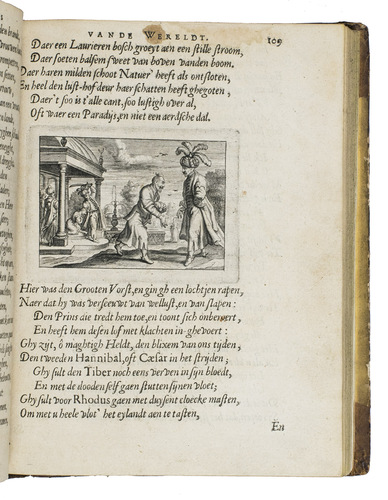 VANDE WERELDT. 109
Daer een Laurieren bosch groeyt aen een stille stroom,
Daer soeten balsem sweet van boven vanden boom.
Daer haren milden schoot Natuer' heeft als ontsloten,
En heel den lust-hof deur haer schatten heeft ghegoten,
Daer't soo is t'alle cant, soo lustigh over al,
Oft waer een Paradys, en niet een aerdsche dal.
Hier was den Grooten Vorst, en gingh een lochtjen rapen,
Naer dat hy was verseeuwt van wellust, en van slapen:
Den Prins die tredt hem toe, en toont sich onbevert,
En heeft hem desen lof met klachten in-ghevoert:
Ghy zijt, ô maghtigh Heldt, den blixem van ons tyden,
Den tweeden Hannibal, oft Cæsar in het stryden;
Ghy sult den Tiber noch eens verven in syn bloedt,
En met de dooden self gaen stutten synen vloet;
Ghy sult voor Rhodus gaen met duysent cloecke masten,
Om met u heele vlot' het eylandt aen te tasten,
En